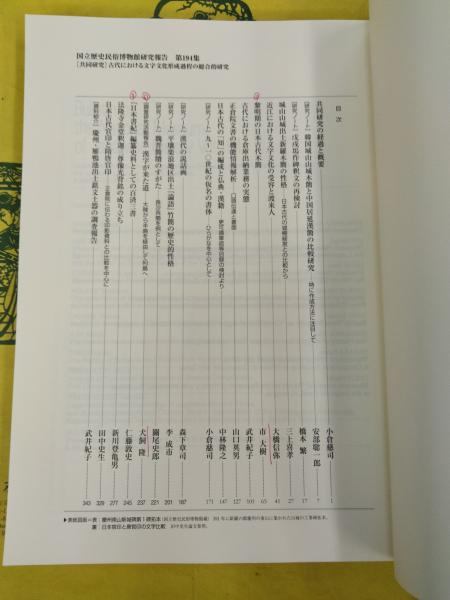 国立歴史民俗博物館研究報告 第194集
[共同研究] 古代における文字文化形成過程の総合的研究
目 次
共同研究の経過と概要 小倉慈司 1
[研究ノート] 韓国城山山城木簡と中国居延漢簡の比較研究 ―特に作成方法に注目して― 安部聡一郎 7
[研究ノート] 戊戌塢作碑釈文の再検討 橋本 繁 17
城山山城出土新羅木簡の性格 ―日本古代の城柵経営との比較から― 三上喜孝 27
近江における文字文化の受容と渡来人 大橋信弥 41
黎明期の日本古代木簡 市 大樹 65
古代における倉庫出納業務の実態 武井紀子 101
正倉院文書の機能情報解析 口頭伝達と書面 山口英男 127
日本古代の「知」の編成と仏典・漢籍 ―更可請章疏等目録の検討より― 中林隆之 147
九~一〇世紀の仮名の書体 ―ひらがなを中心として― 小倉慈司 171
[研究ノート] 漢代の説話画 森下章司 187
[研究ノート] 平壌楽浪地区出土『論語』竹簡の歴史的性格 李 成市 201
[研究ノート] 魏晋簡牘のすがた ―長沙呉簡を例として― 關尾史郎 221
[調査研究活動報告] 漢字が来た道 ―大陸から半島を経由して列島へ 犬飼 隆 237
『日本書紀』編纂史料としての百済三書 仁藤敦史 245
法隆寺金堂釈迦三尊像光背銘の成り立ち 新川登亀男 277
日本古代官印と隋唐官印 ―正倉院に伝わる印影資料との比較を中心に 田中史生 329
[資料紹介] 慶州・雁鴨池出土銘文土器の調査報告 武井紀子 343
▶表紙図版=表:慶州南山新城碑第1碑拓本(国立歴史民俗博物館蔵) 591年に新羅の都慶州の南山に築かれた山城の工事碑拓本。
裏 日本官印と唐官印の文字比較 田中史生論文参照。